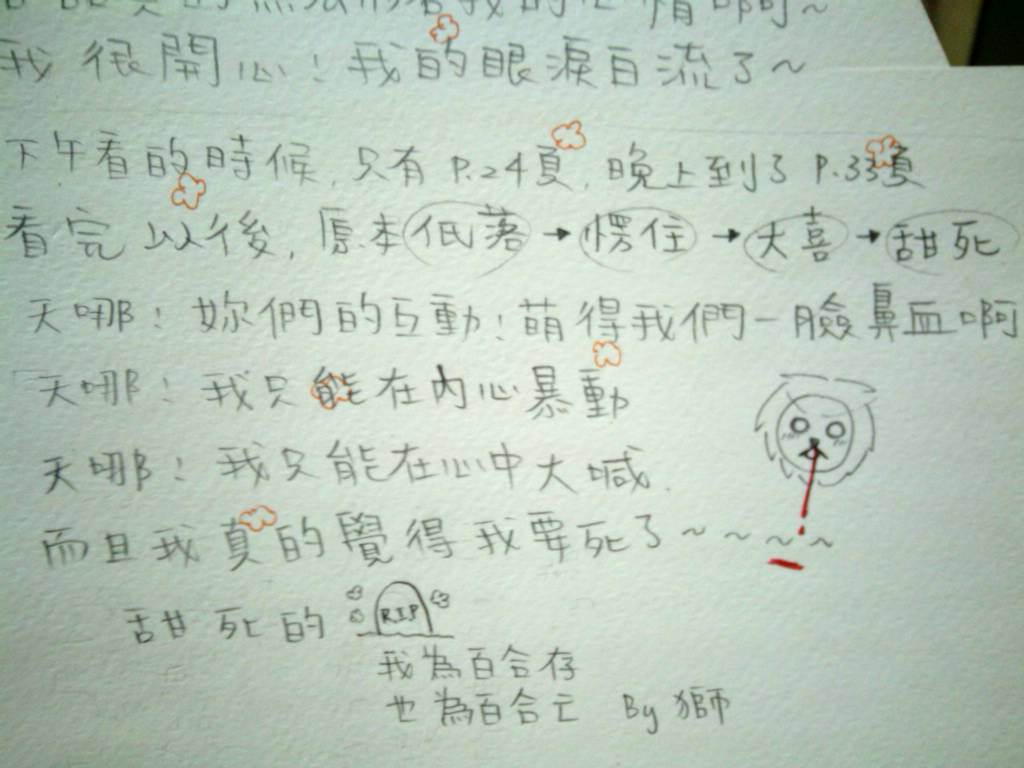 真的無法形容我的心情啊~
我很開心！我的眼淚自流了~
下午看的時候，只有 P.24頁，晚上到了 P.33頁
看完以後，原本低落→愣住→大喜→甜死
天哪！妳們的互動！萌得我們一臉鼻血啊
天哪！我只能在內心暴動
天哪！我只能在心中大喊．
而且我真的覺得我要死了~~~~
甜死的
RIP
我為百合存
也為百合亡 By 獅